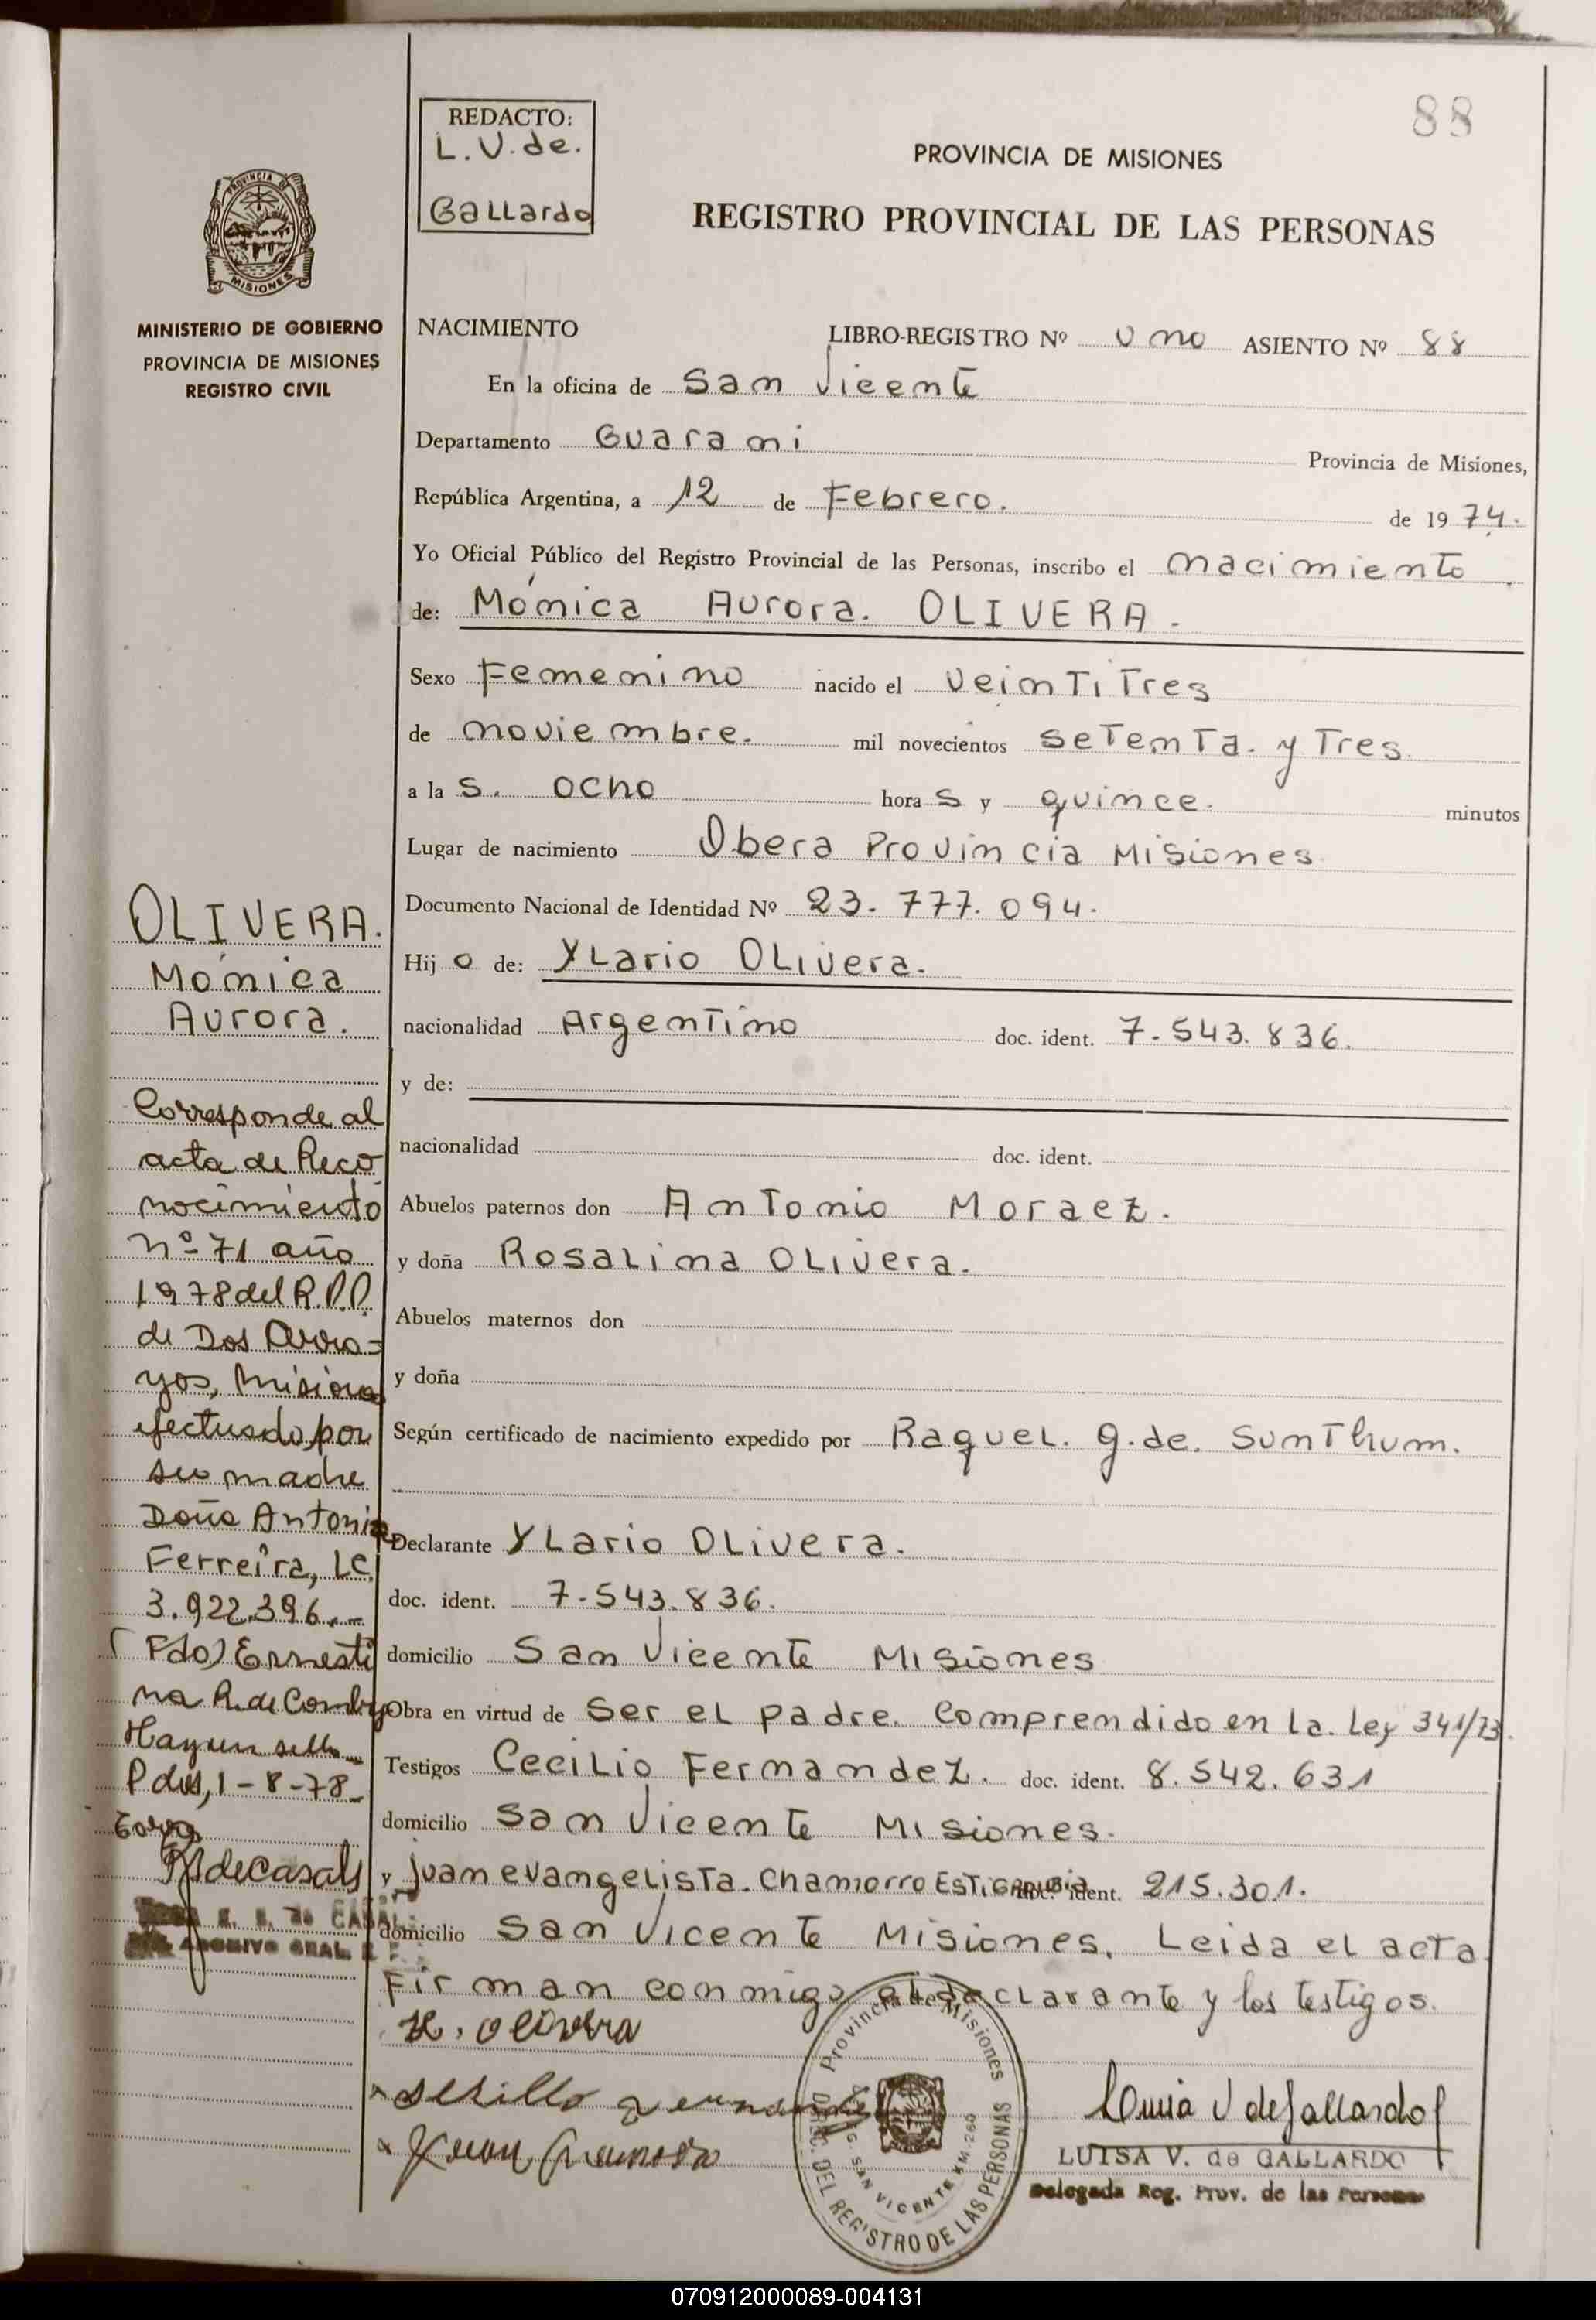 88
REDACTO:
L.V.de.
Gallardo
PROVINCIA DE MISIONES
REGISTRO PROVINCIAL DE LAS PERSONAS
PROVINCIA DE
MISIONES
MINISTERIO DE GOBIERNO
PROVINCIA DE MISIONES
REGISTRO CIVIL
NACIMIENTO LIBRO-REGISTRO Nº Uno ASIENTO Nº 88
En la oficina de San Vicente
Departamento Guarani Provincia de Misiones,
República Argentina, a 12 de Febrero. de 1974.
Yo Oficial Público del Registro Provincial de las Personas, inscribo el nacimiento
de: Mónica Aurora. OLIVERA.
Sexo Femenino nacido el VeinTiTres
de noviembre. mil novecientos seTenTa. y Tres
a las. ocho horas y quince. minutos
Lugar de nacimiento Obera Provincia Misiones
Documento Nacional de Identidad Nº 23.777.094.
Hijo de: YLario OLivera.
nacionalidad ArgenTino doc. ident. 7.543.836.
y de:
nacionalidad doc. ident.
Abuelos paternos don AnTonio Moraez.
y doña RosaLina OLivera.
Abuelos maternos don
y doña
Según certificado de nacimiento expedido por RaqueL. g.de. SunThum.
Declarante YLario OLivera.
doc. ident. 7.543.836.
domicilio San Vicente Misiones
Obra en virtud de ser eL padre. Comprendido en La. Ley 341/73.
Testigos CeciLio Fernandez. doc. ident. 8.542.631
domicilio San Vicente Misiones.
y Juan evangeLisTa. Chamorro ESTIGARRIBIA doc. ident. 215.301.
domicilio San Vicente Misiones. Leida el acTa
Firman conmigo el declarante y los testigos.
H. Olivera
Juan Chamorro
Provincia de Misiones
DIREC. DEL REGISTRO DE LAS PERSONAS
SAN VICENTE KM-260
Luisa V de Gallardo
LUISA V. de GALLARDO
Delegada Reg. Prov. de las Personas
OLIVERA.
Mónica
Aurora.
Corresponde al
acta de Reco
nocimiento
nº 71 año
1978 del R.P.P.
de Dos Arro-
yos, Misiones
efectuado por
su madre
Doña Antonia
Ferreira, LC.
3.922.396.-
(Fdo) Ernesti
na R. de Comby
Hay un sello
Pdas, 1-8-78-
DE CASAL
ARCHIVO GRAL. R. P.
070912000089-004131